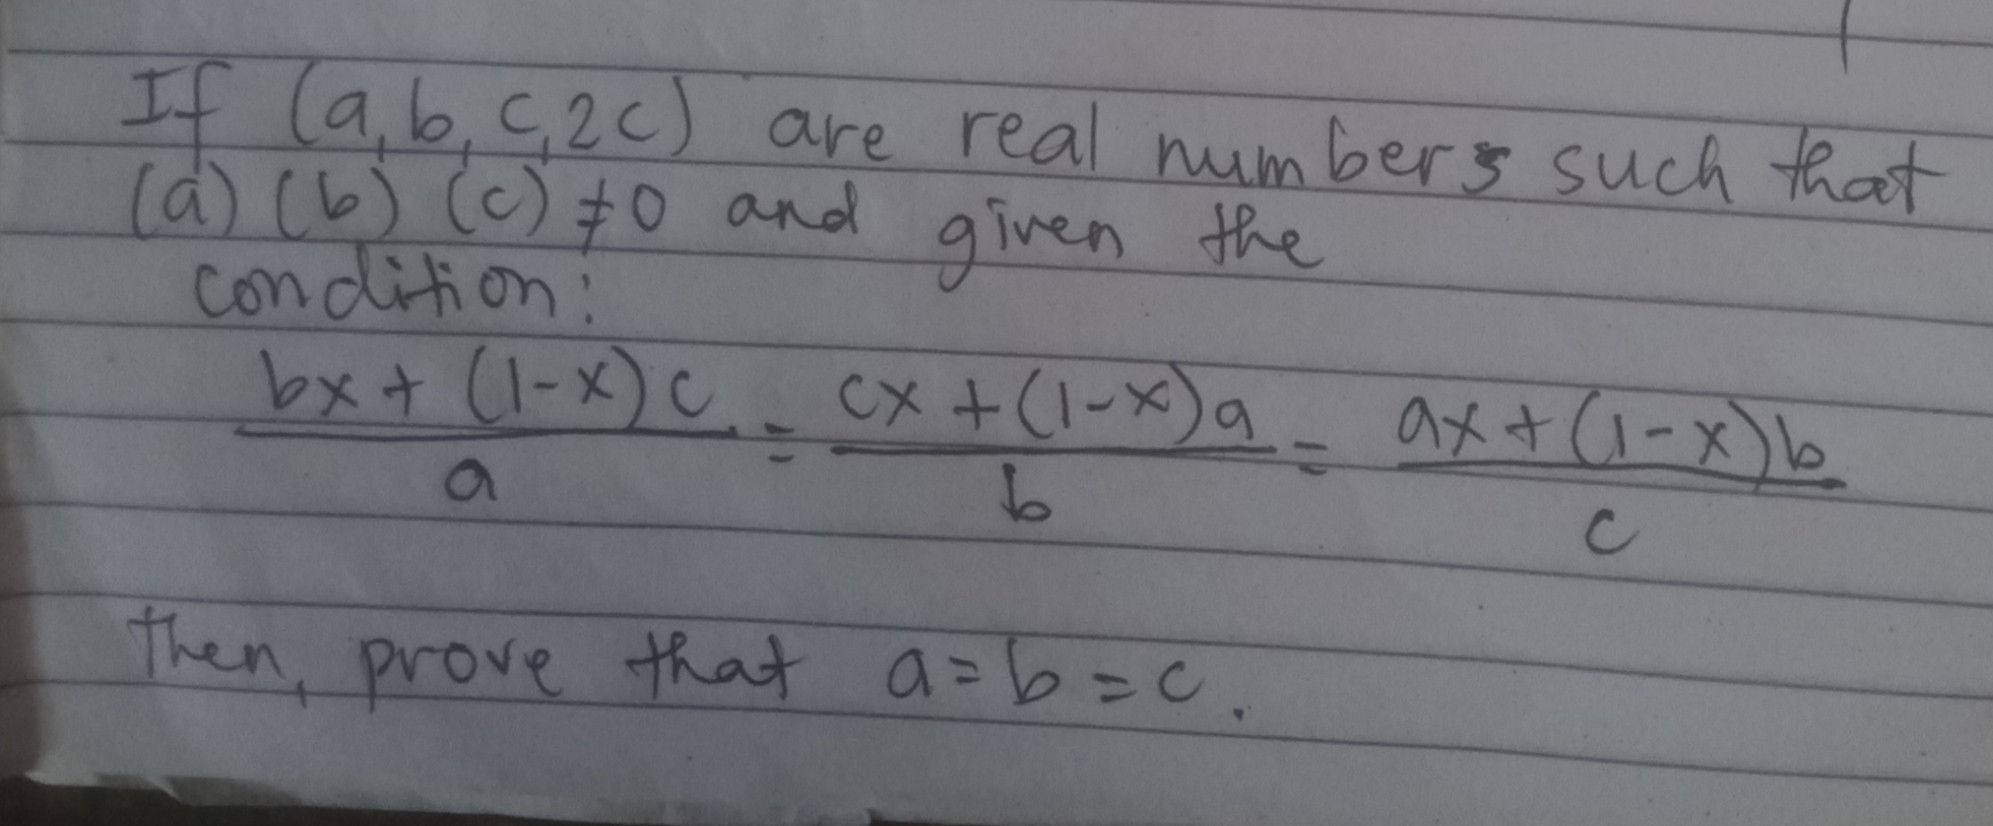 If (a, b, c, 2c) are real numbers such that
(a) (b) (c) ≠ 0 and given the
condition:
bx + (1-x) c / a = cx + (1-x) a / b = ax + (1-x) b / c
Then, prove that a = b = c.